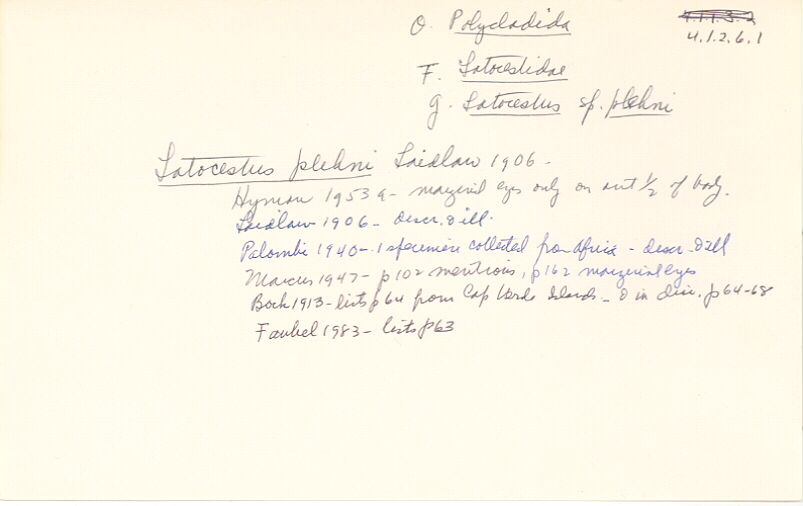 O. Polycladida
4.1.2.6.1
F. Latocestidae
g. Latocestus sp. plehni
Latocestus plehni Laidlaw 1906 -
Hyman 1953a - marginal eyes only on ant 1/2 of body.
Laidlaw 1906 - descr. & ill.
Palombi 1940 - 1 specimen collected from Africa - descr. & ill
Marcus 1947 - p102 mentions, p162 marginal eyes
Bock 1913 - lists p64 from Cap Verde Islands - & in disc. p64-68
Faubel 1983 - lists p63